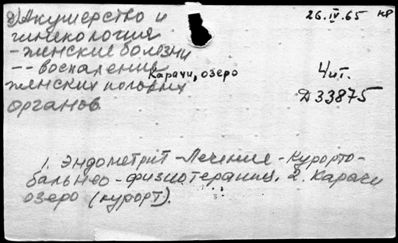 д) Акушерство и
гинекология
- женские болезни
-- воспаления
женских половых
органов
26.IV.65 кр
Карачи, озеро
Чит.
Д33875
1. Эндометрит - Лечение - Курорто-
бальнео-физиотерапия. 2. Карачи
озеро (курорт).